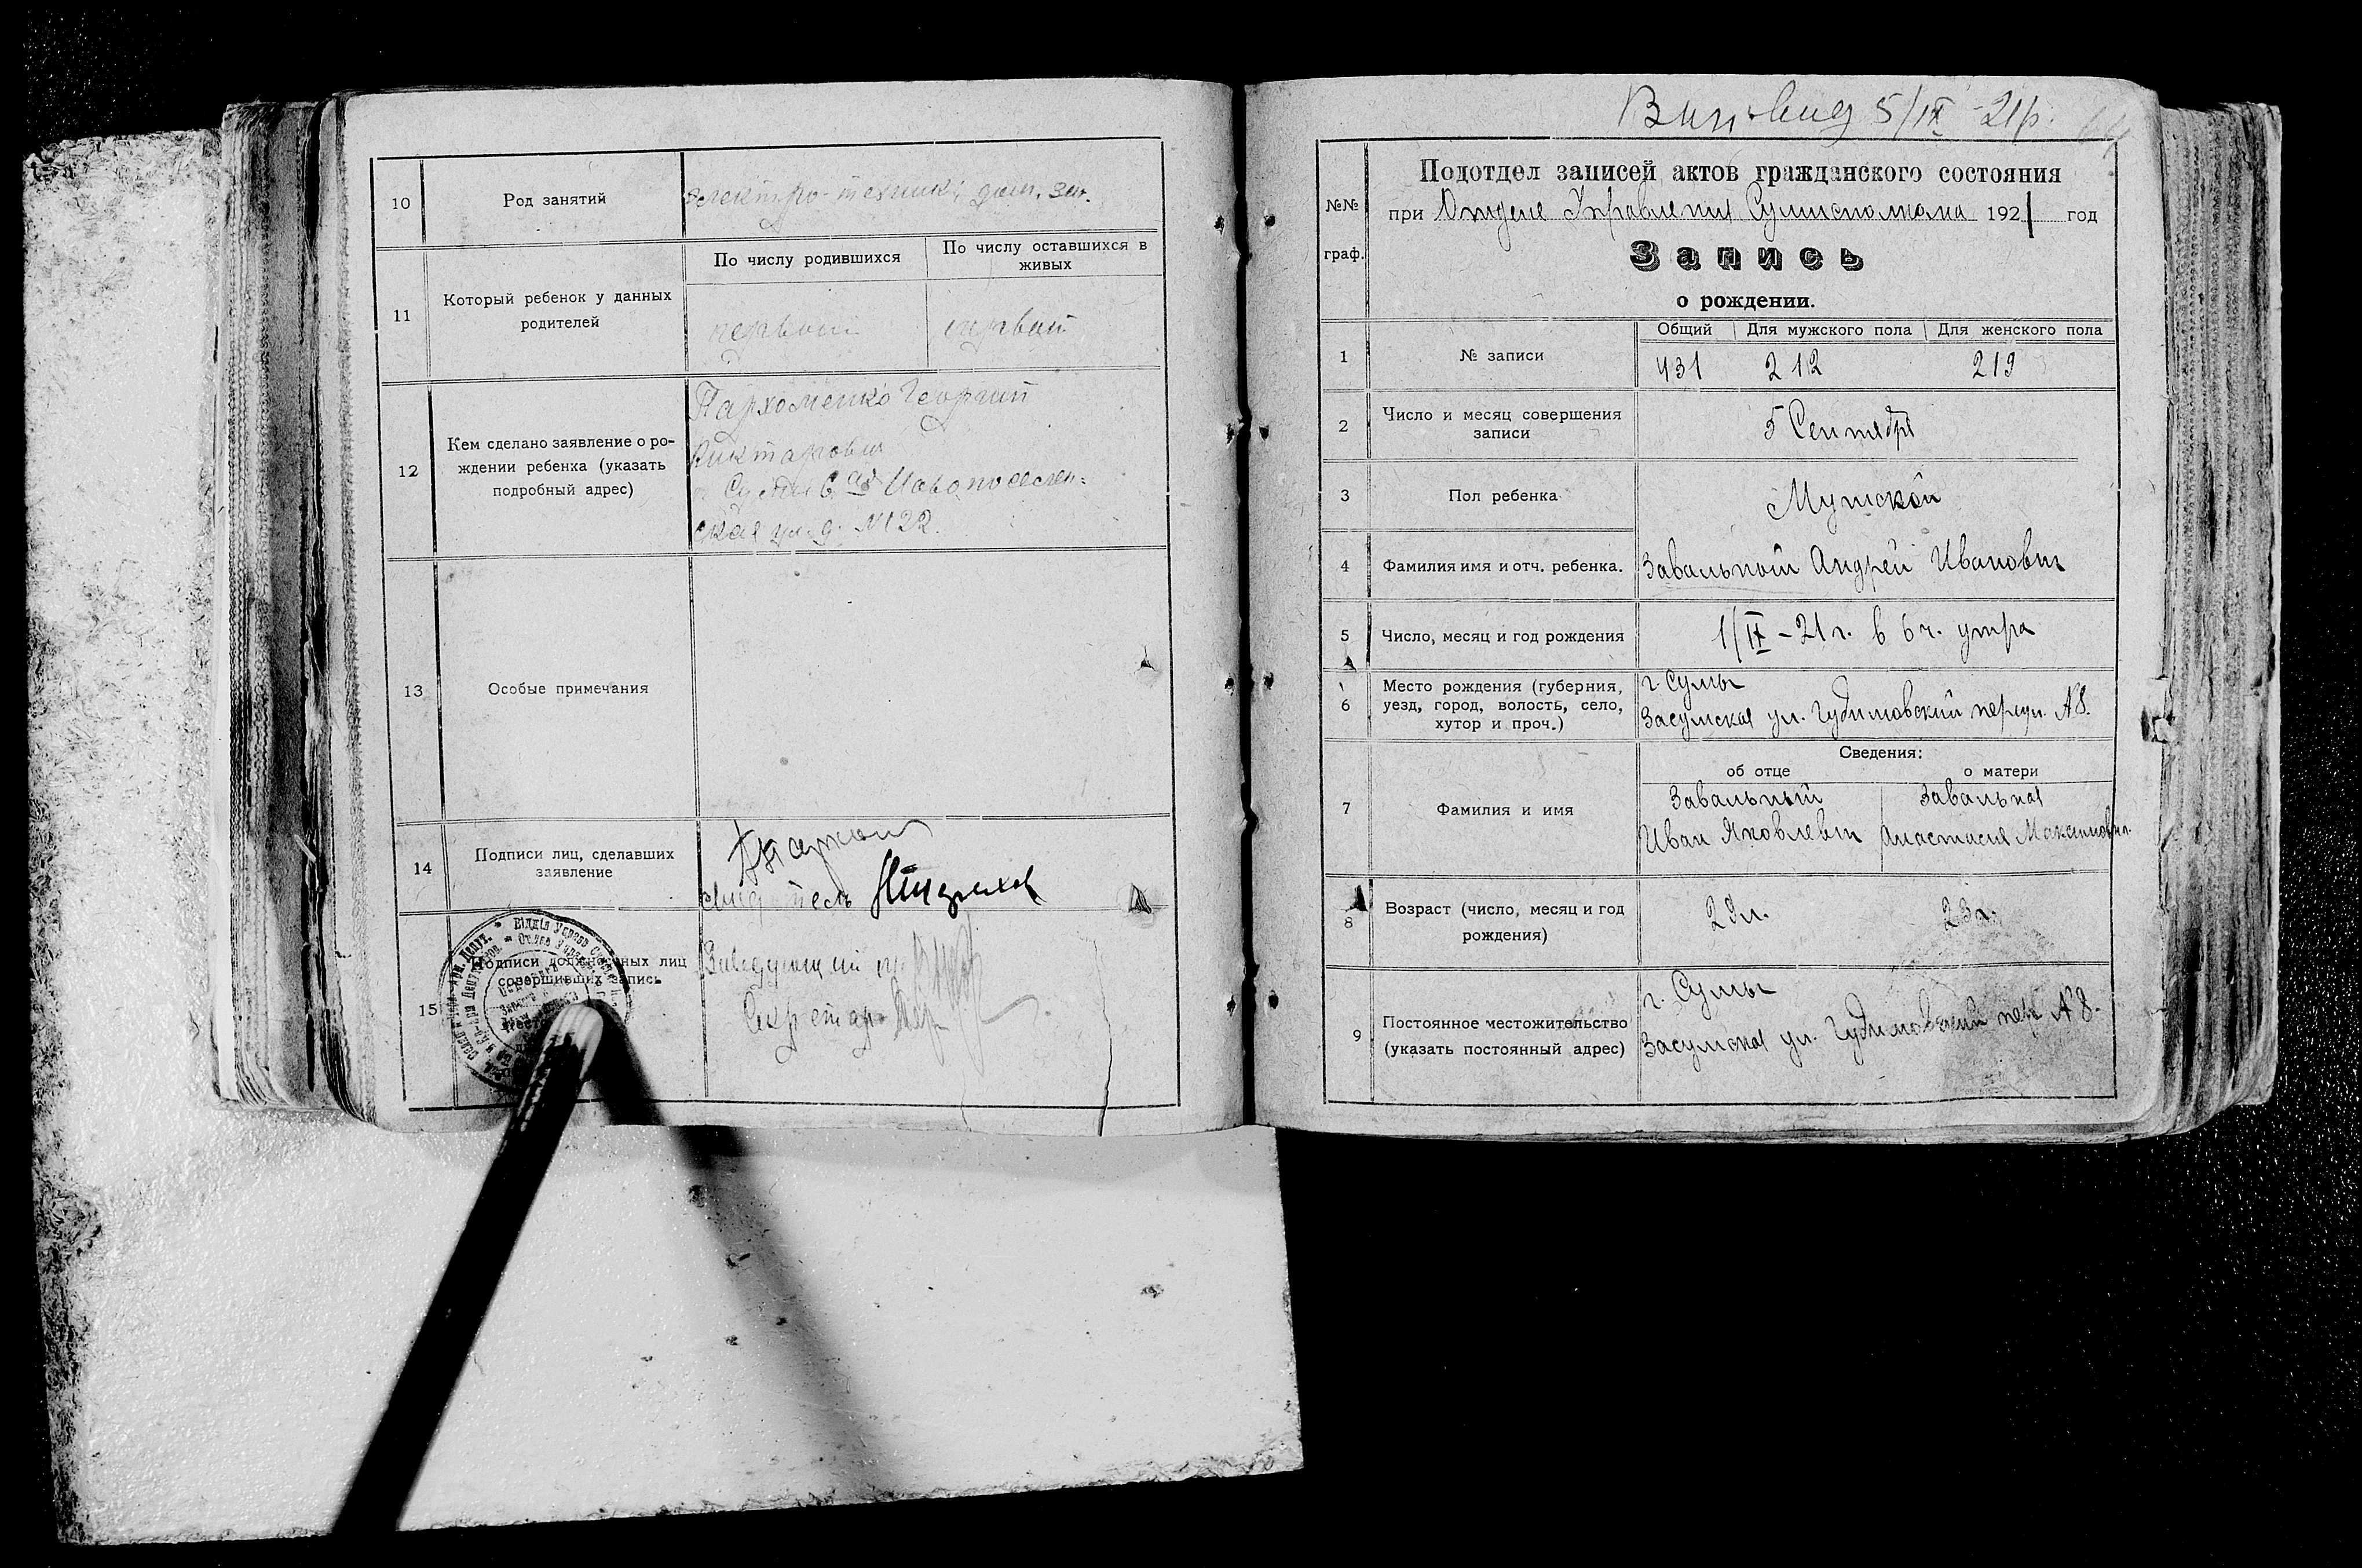 10
Род занятий
электро-техник; дом. зан.
11
Который ребенок у данных
родителей
По числу родившихся
По числу оставшихся в
живых
первый
первый
12
Кем сделано заявление о ро-
ждении ребенка (указать
подробный адрес)
Пархоменко Георгий
Викторович
г. Сумы 6ая Новопоселен-
ская ул. д. №122.
13
Особые примечания
14
Подписи лиц, сделавших
заявление
15
Подписи должностных лиц
совершивших запись
Заведующий
Секретар
5/IX -21р.
№№
граф.
Подотдел записей актов гражданского состояния
при Отделе Управления Сумисполкома 1921 год
Запись
о рождении.
1
№ записи
Общий
Для мужского пола
Для женского пола
431
212
219
2
Число и месяц совершения
записи
5 Сентября
3
Пол ребенка
Мужской
4
Фамилия имя и отч. ребенка.
Завальный Андрей Иванович
5
Число, месяц и год рождения
1/IX -21 г. в 6 ч. утра
6
Место рождения (губерния,
уезд, город, волость, село,
хутор и проч.)
г. Сумы
Засумская ул. Гудимовский переул. №8.
7
Фамилия и имя
Сведения:
об отце
о матери
Завальный
Иван Яковлевич
Завальная
Анастасия Максимовна.
8
Возраст (число, месяц и год
рождения)
29 л.
23 г.
9
Постоянное местожительство
(указать постоянный адрес)
г. Сумы
Засумская ул. Гудимовский пер. №8.